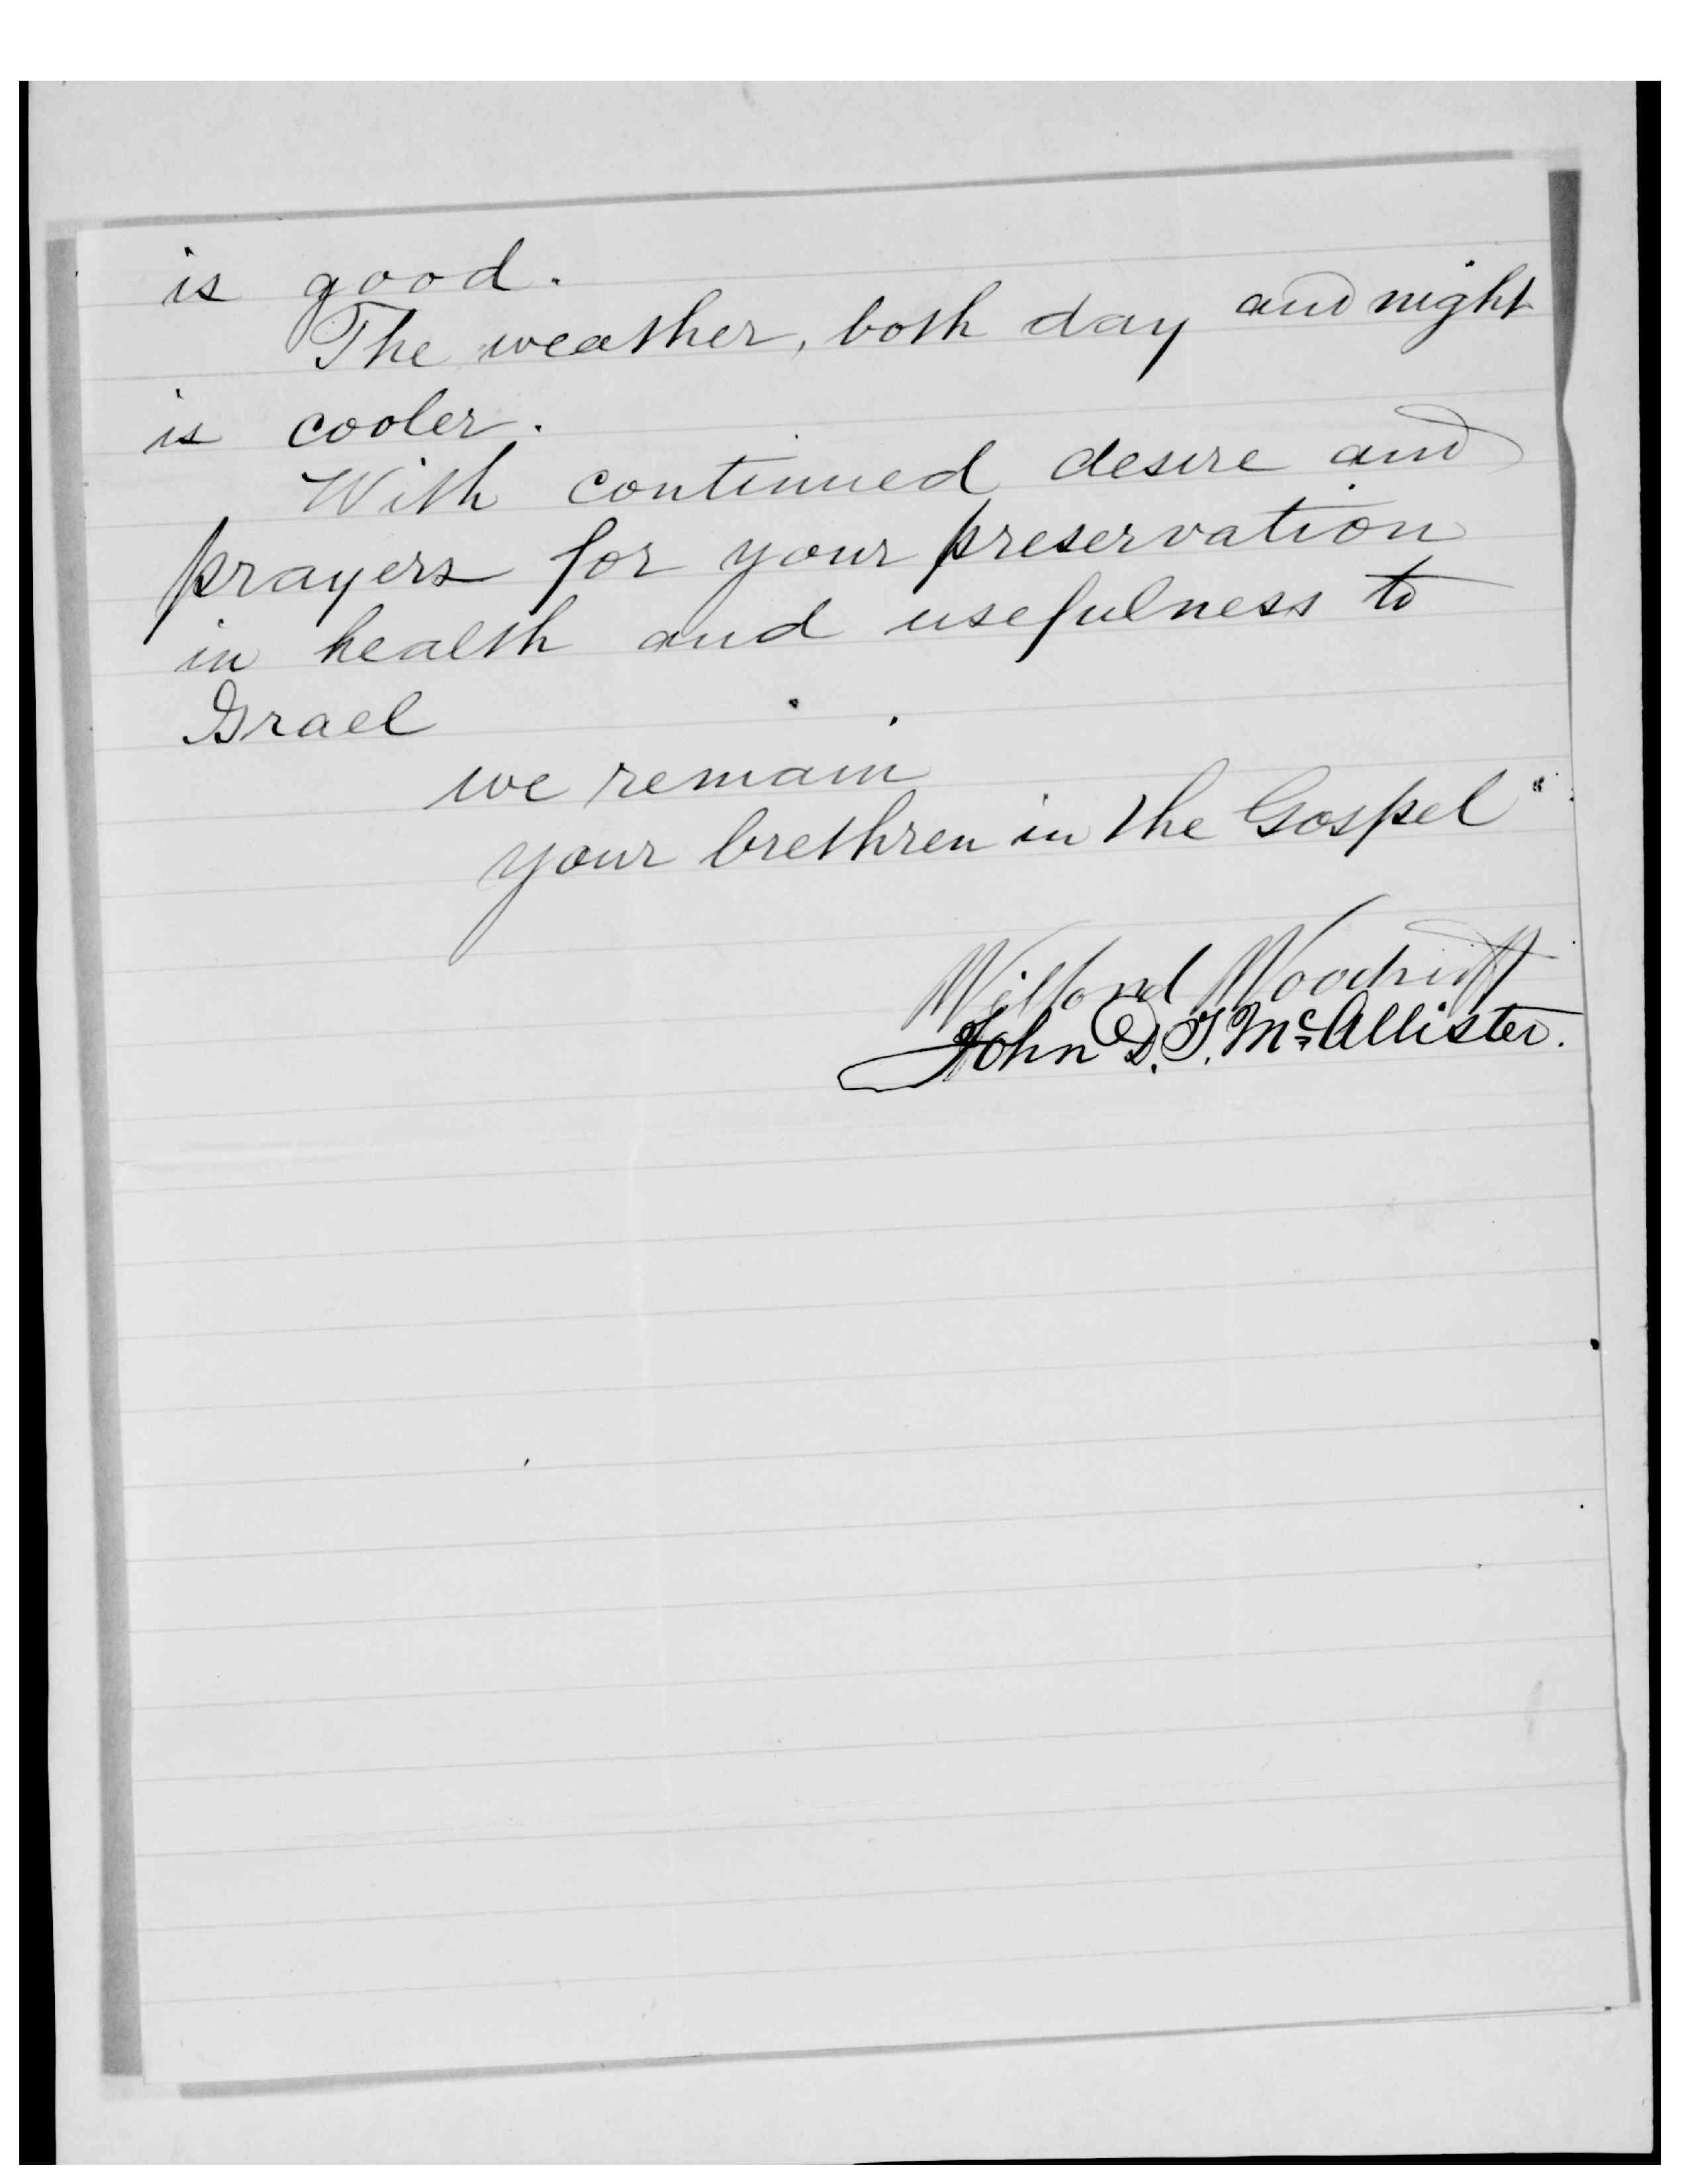 is good.
The weather, both day and night
is cooler.
With continued desire and
prayers for your preservation
in health and usefulness to
Israel
we remain
your brethren in the Gospel
Wilford Woodruff
John D. T. McAllister.